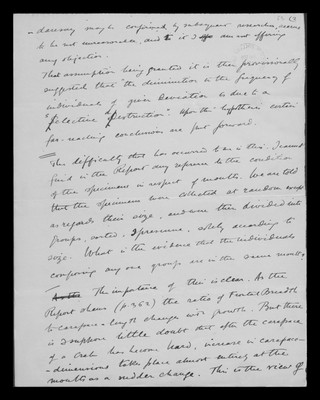 - dancing may be confirmed by subsequent researches, seems
to be not unreasonable, and to it I am not offering
any objection.
That assumption being granted it is then provisionally
suggested that "the diminution in the frequency of
individuals of given deviation is due to a
"Selective Destruction". Upon this hypothesis certain
far-reaching conclusions are put forward.
The difficulty that has occurred to me is this. I cannot
find in the Report any reference to the condition
of the specimens in respect of moults. We are told
that the specimens were collected at random except
as regards their size, and were then divided into
groups, sorted, I presume, solely according to
size. What is the evidence that the individuals
composing any one group are in the same moult?
The importance of this is clear. As the
Report shows (p. 363) the ratio of Frontal Breadth
to carapace-length changes with growth. But there
is I suppose little doubt that after the carapace
of a Crab has become hard, increase in carapace
-dimensions takes place almost entirely at the
moults as a sudden change. This is the view of